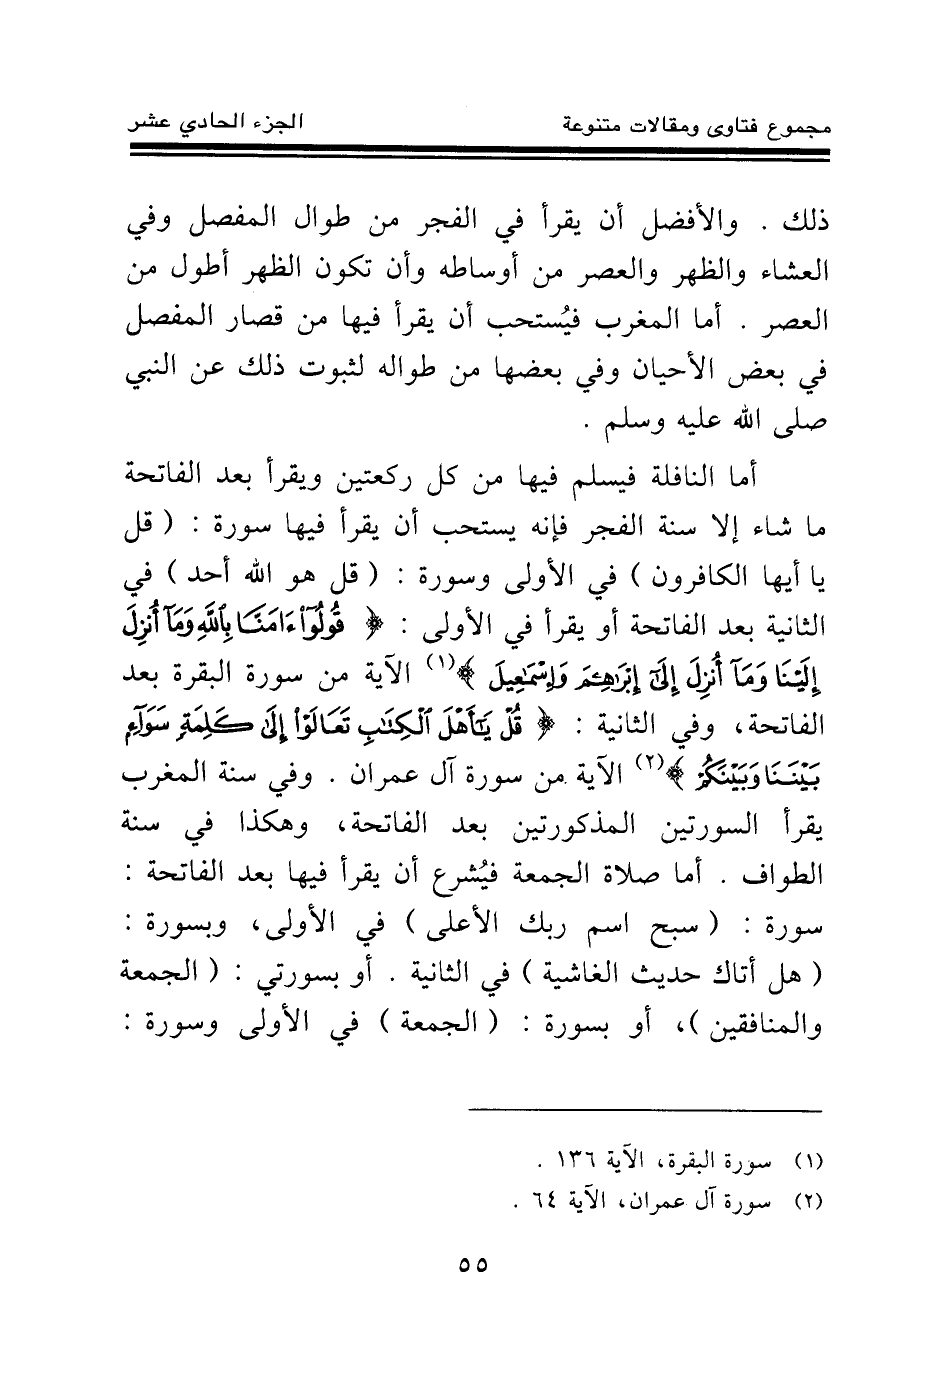 مجموع فتاوى ومقالات متنوعة الجزء الحادي عشر
ذلك . والأفضل أن يقرأ في الفجر من طوال المفصل وفي
العشاء والظهر والعصر من أوساطه وأن تكون الظهر أطول من
العصر . أما المغرب فيُستحب أن يقرأ فيها من قصار المفصل
في بعض الأحيان وفي بعضها من طواله لثبوت ذلك عن النبي
صلى الله عليه وسلم .
أما النافلة فيسلم فيها من كل ركعتين ويقرأ بعد الفاتحة
ما شاء إلا سنة الفجر فإنه يستحب أن يقرأ فيها سورة : ( قل
يا أيها الكافرون ) في الأولى وسورة : ( قل هو الله أحد ) في
الثانية بعد الفاتحة أو يقرأ في الأولى : ﴿ قُولُوٓا۟ ءَامَنَّا بِٱللَّهِ وَمَآ أُنزِلَ
إِلَيْنَا وَمَآ أُنزِلَ إِلَىٰٓ إِبْرَٰهِـۧمَ وَإِسْمَٰعِيلَ ﴾(١) الآية من سورة البقرة بعد
الفاتحة، وفي الثانية : ﴿ قُلْ يَٰٓأَهْلَ ٱلْكِتَٰبِ تَعَالَوْا۟ إِلَىٰ كَلِمَةٍ سَوَآءٍۭ
بَيْنَنَا وَبَيْنَكُمْ ﴾(٢) الآية من سورة آل عمران . وفي سنة المغرب
يقرأ السورتين المذكورتين بعد الفاتحة، وهكذا في سنة
الطواف . أما صلاة الجمعة فيُشرع أن يقرأ فيها بعد الفاتحة :
سورة : ( سبح اسم ربك الأعلى ) في الأولى، وبسورة :
( هل أتاك حديث الغاشية ) في الثانية . أو بسورتي : ( الجمعة
والمنافقين )، أو بسورة : ( الجمعة ) في الأولى وسورة :
(١) سورة البقرة، الآية ١٣٦ .
(٢) سورة آل عمران، الآية ٦٤ .
٥٥